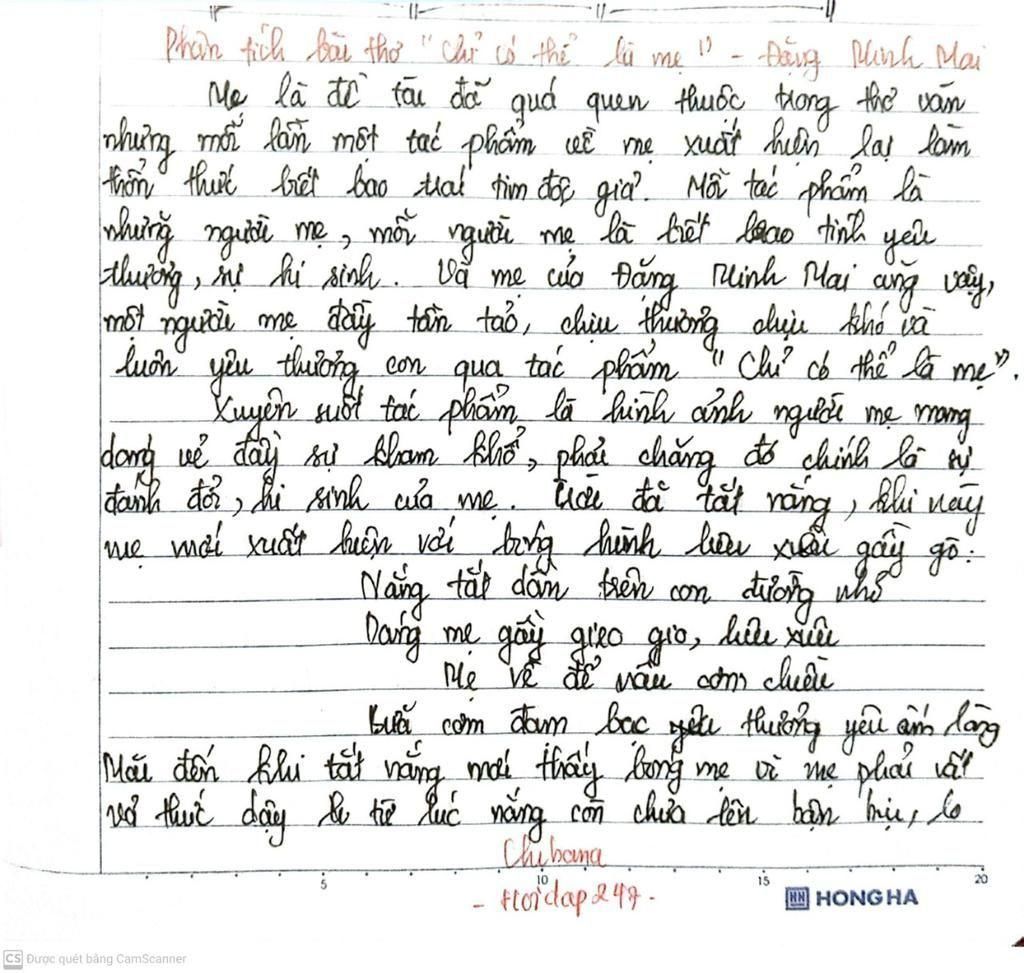 Phân tích bài thơ "Chỉ có thể là mẹ" - Đặng Minh Mai
Mẹ là đề tài đã quá quen thuộc trong thơ văn
nhưng mỗi lần một tác phẩm về mẹ xuất hiện lại làm
thổn thức biết bao trái tim độc giả. Mỗi tác phẩm là
những người mẹ, mỗi người mẹ là biết bao tình yêu
thương, sự hi sinh. Và mẹ của Đặng Minh Mai cũng vậy,
một người mẹ đầy tần tảo, chịu thương chịu khó và
luôn yêu thương con qua tác phẩm "Chỉ có thể là mẹ".
Xuyên suốt tác phẩm là hình ảnh người mẹ mang
dáng vẻ đầy sự kham khổ, phải chăng đó chính là sự
đánh đổi, hi sinh của mẹ. Trời đã tắt nắng, khi này
mẹ mới xuất hiện với bóng hình liêu xiêu gầy gò:
Nắng tắt dần trên con đường nhỏ
Dáng mẹ gầy gieo gio, liêu xiêu
Mẹ về để nấu cơm chiều
Bữa cơm đam bạc yêu thương yên ấm lòng
Mãi đến khi tắt nắng mới thấy bóng mẹ vì mẹ phải vất
vả thức dậy từ lúc nắng còn chưa lên bận bịu, lo
Chibana
- Hoidap247.
5 10 15 20
HN HONG HA
CS Được quét bằng CamScanner